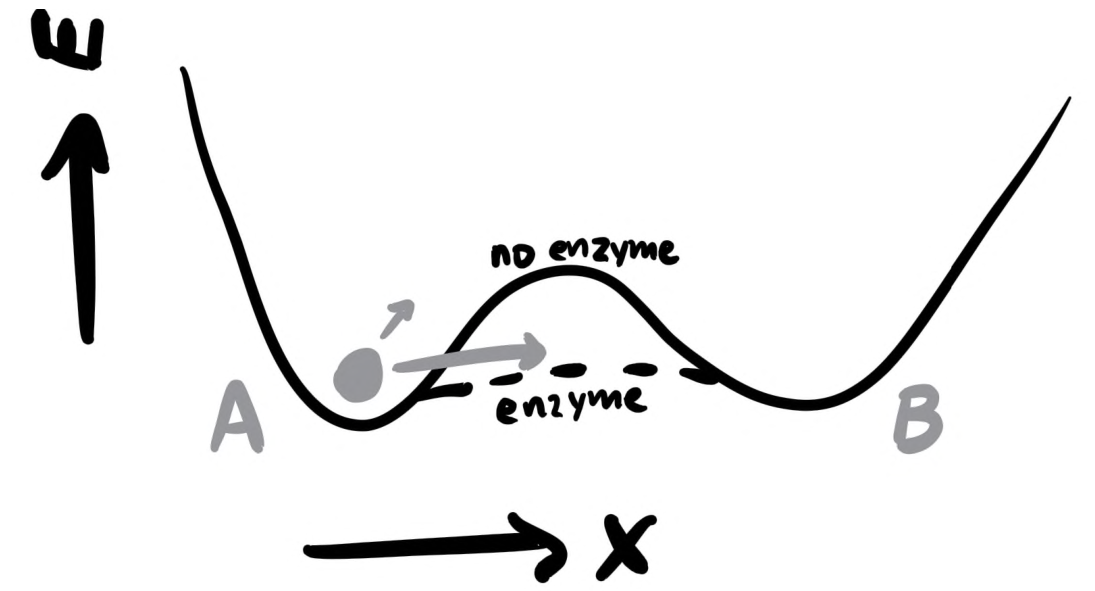 E
no enzyme
enzyme
A
B
X